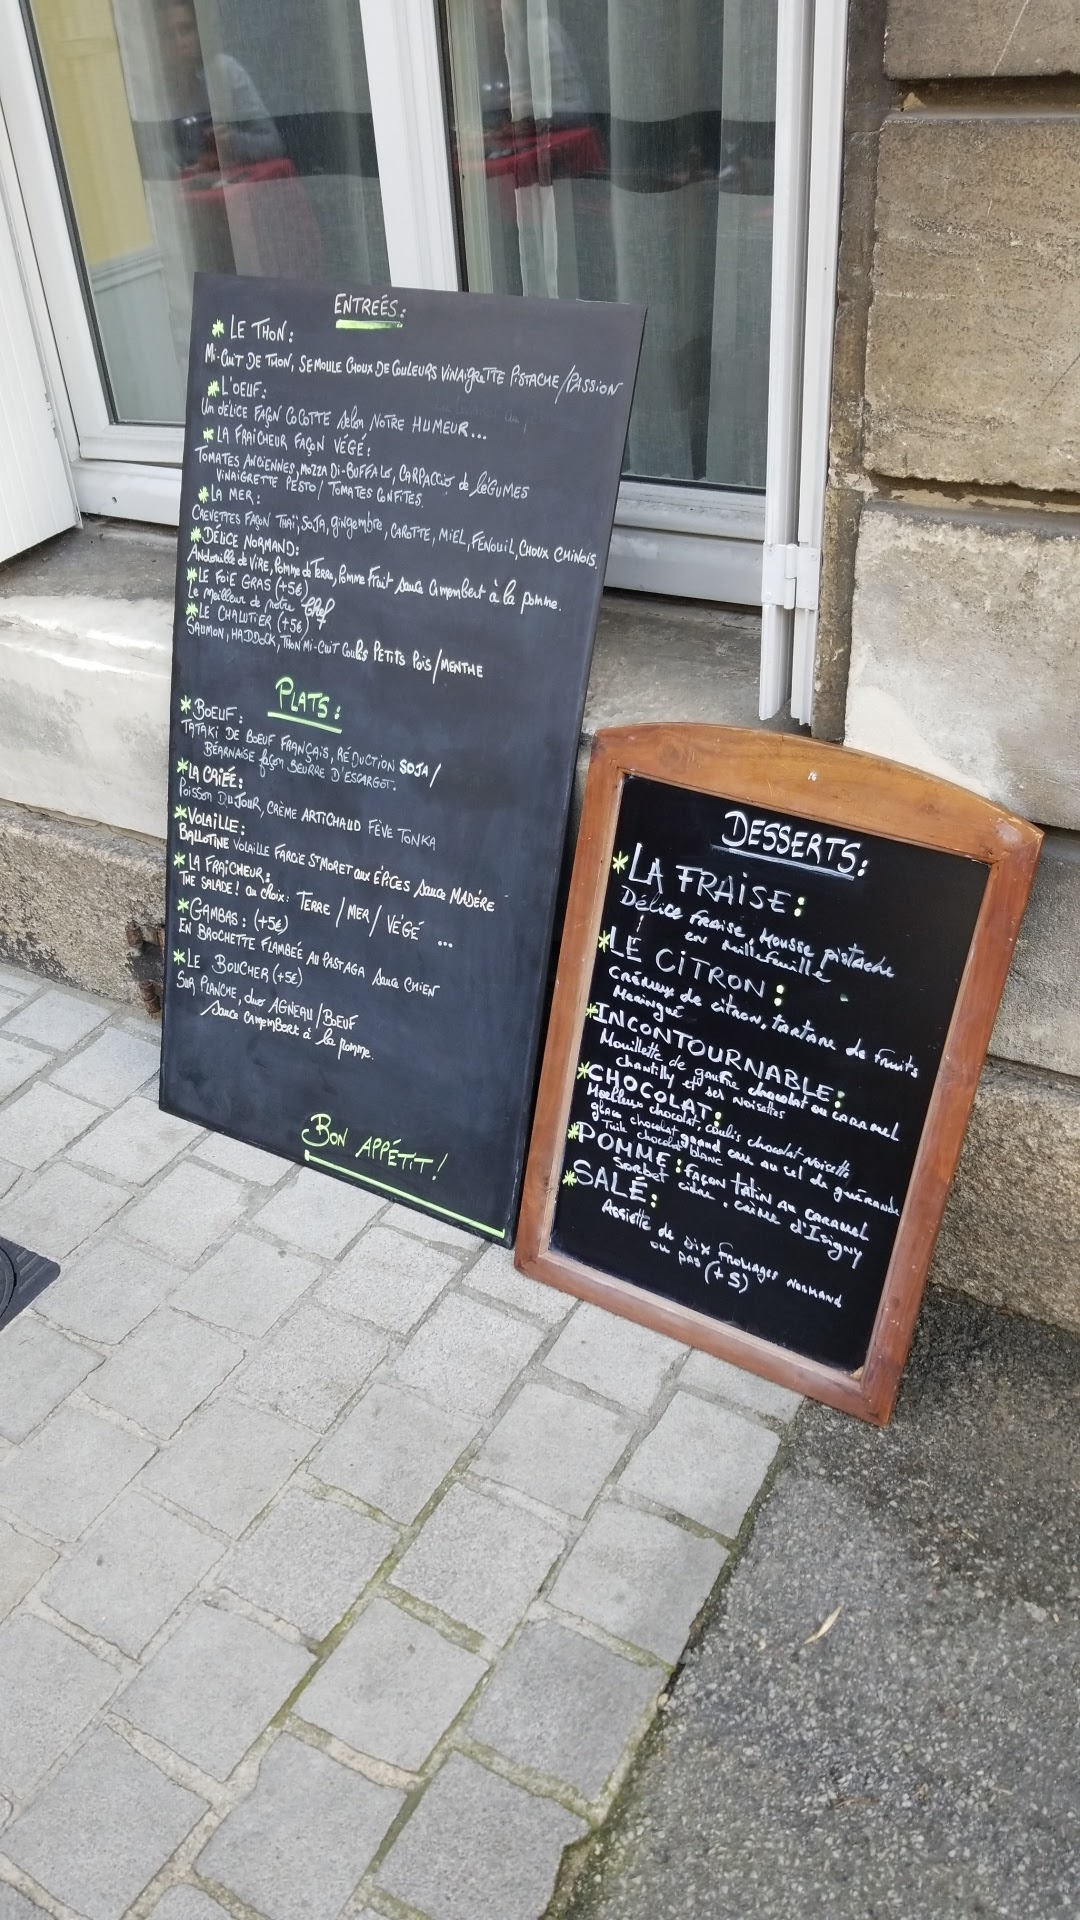 ENTREÉS:
* LE THON:
Mi-CUIT DE THON, SEMOULE CHOUX DE COULEURS VINAIGRETTE PISTACHE/PASSION
* L'OEUF:
Un DÉLICE FAÇON COCOTTE selon NOTRE HUMEUR...
* LA FRAICHEUR FAÇON VÉGÉ:
TOMATES ANCIENNES, MOZZA DI-BUFFALO, CARPACCIO de LÉGUMES
VINAIGRETTE PESTO/ TOMATES CONFITES.
* LA MER:
CREVETTES FAÇON THAÏ, SOJA, gingembre, CAROTTE, MIEL, FENOUIL, CHOUX CHINOIS.
* DÉLICE NORMAND:
Andouille de VIRE, Pomme de Terre, Pomme Fruit sauce camembert à la pomme.
* LE FOIE GRAS (+5€)
Le meilleur de notre Chef
* LE CHALUTIER (+5€)
SAUMON, HADDOCK, THON Mi-CUIT COULIS PETITS POIS/MENTHE
PLATS:
* BOEUF:
TATAKI DE BOEUF FRANÇAIS, RÉDUCTION SOJA/
BÉARNAISE façon BEURRE D'ESCARGOT.
* LA CRIÉE:
POISSON DU JOUR, CRÈME ARTICHAUD FÈVE TONKA
* VOLAILLE:
BALLOTINE VOLAILLE FARCIE ST MORET aux ÉPICES sauce MADÈRE
* LA FRAÎCHEUR:
THE SALADE! au choix: TERRE / MER / VÉGÉ ...
* GAMBAS: (+5€)
EN BROCHETTE FLAMBEÉ AU PASTAGA sauce CHIEN
* LE BOUCHER (+5€)
SUR PLANCHE, duo AGNEAU/BOEUF
sauce camembert à la pomme.
BON APPÉTIT!
DESSERTS:
* LA FRAISE:
Délice Fraise, Mousse pistache
en millefeuille
* LE CITRON:
crémeux de citron, tartare de fruits
Meringué
* INCONTOURNABLE:
Mouillette de gaufre chocolat ou CARAMEL
chantilly et ses noisettes
* CHOCOLAT:
Moelleux chocolat, coulis chocolat noisette
glace chocolat grand cru au sel de guérande
Tuile chocolat blanc
* POMME: façon tatin au caramel
sorbet cidre, crème d'Isigny
* SALÉ:
Assiette de DIX fromages NORMAND
ou pas (+5)